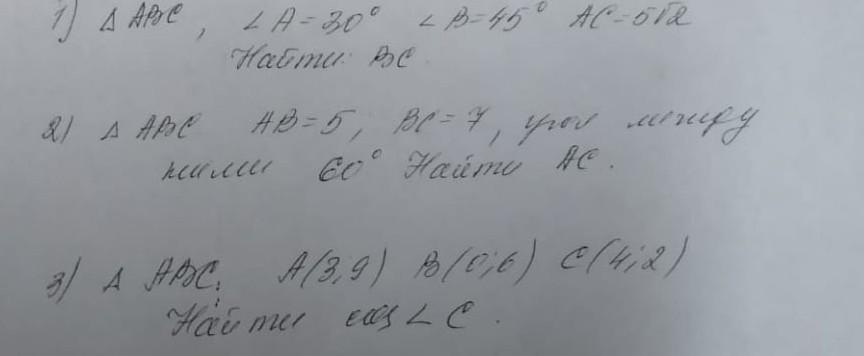 1) △ ABC, ∠A=30° ∠B=45° AC=5√2
Найти: BC.
2) △ ABC AB=5, BC=7, угол между
ними 60° Найти AC.
3) △ ABC: A(3;9) B(0;6) C(4;2)
Найти cos∠C.